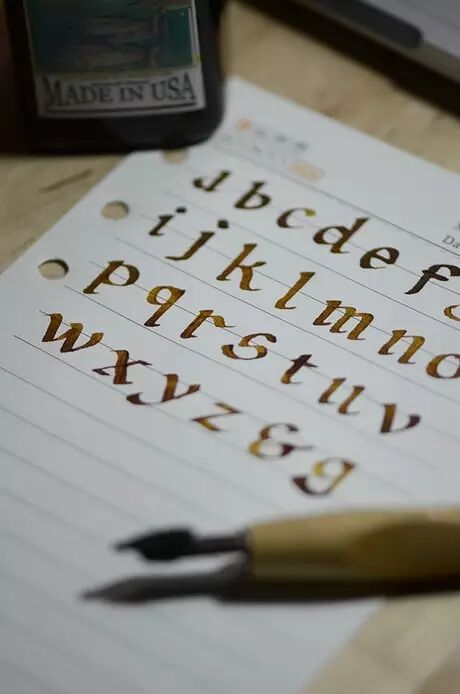 MADE IN USA
a b c d e f
i j k l m n o
p q r s t u v
w x y z & g